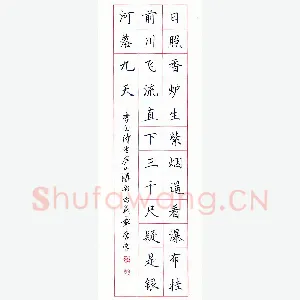 日照香炉生紫烟遥看瀑布挂
前川飞流直下三千尺疑是银
河落九天
Shufawang.CN